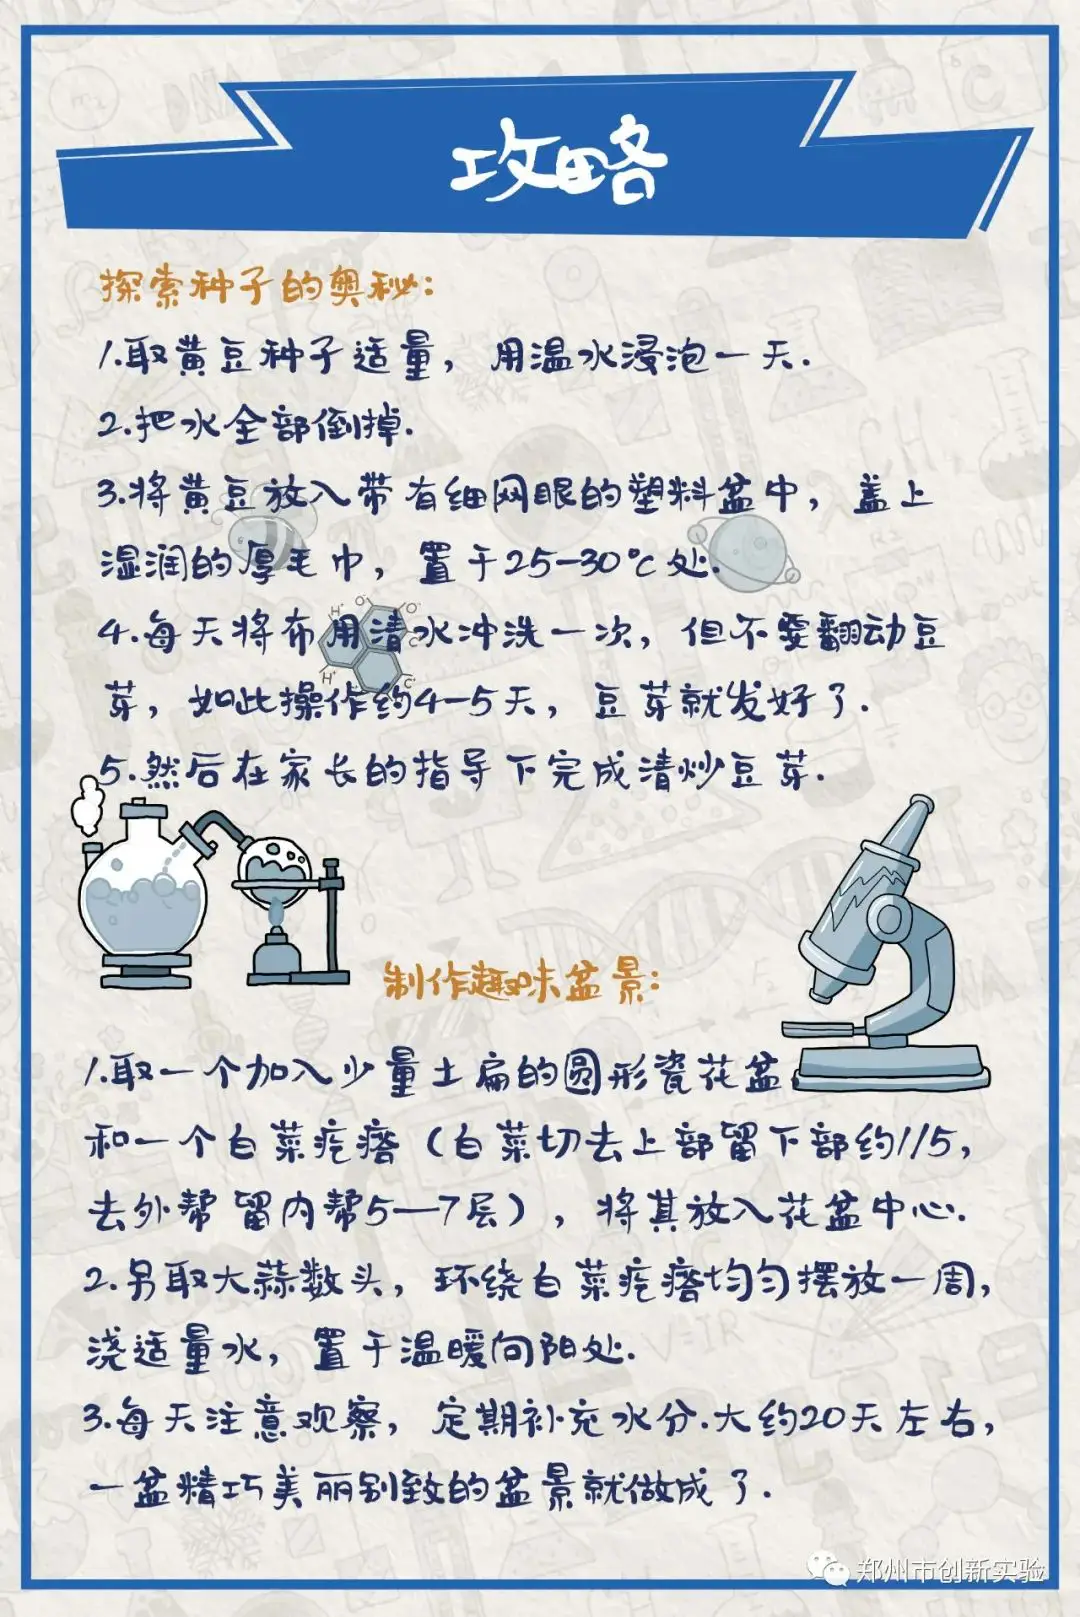 攻略
探索种子的奥秘:
1.取黄豆种子适量，用温水浸泡一天.
2.把水全部倒掉.
3.将黄豆放入带有细网眼的塑料盆中，盖上
湿润的厚毛巾，置于25-30℃处.
4.每天将布用清水冲洗一次，但不要翻动豆
芽，如此操作约4-5天，豆芽就发好了.
5.然后在家长的指导下完成清炒豆芽.
制作趣味盆景:
1.取一个加入少量土扁的圆形瓷花盆
和一个白菜疙瘩（白菜切去上部留下部约1/5，
去外帮留内帮5—7层），将其放入花盆中心.
2.另取大蒜数头，环绕白菜疙瘩均匀摆放一周，
浇适量水，置于温暖向阳处.
3.每天注意观察，定期补充水分.大约20天左右，
一盆精巧美丽别致的盆景就做成了.
郑州市创新实验